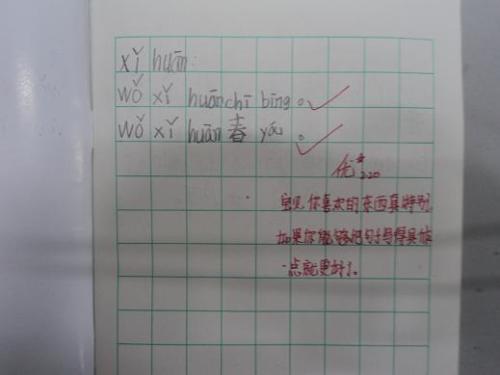 xǐ huān:
wǒ xǐ huān chī bīng。
wǒ xǐ huān 春 yóu。
优★ 3.20
宝贝你喜欢的东西真特别
如果你能够把句子写得具体
一点就更好了。